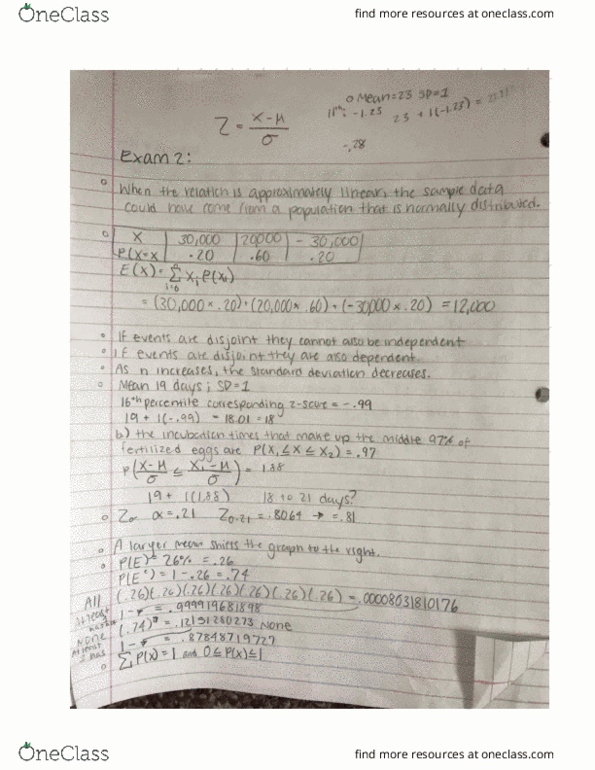 OneClass
find more resources at oneclass.com
Mean=23 SD=1
11th: -1.23
23 + 1(-1.23) =
Z = X-μ
σ
-.28
Exam 2:
When the relation is approximately linear, the sample data
could have come from a population that is normally distributed.
X 30,000 20000 - 30,000
P(X=x .20 .60 .20
E(X)= Σ xi P(xi)
i=0
= (30,000 × .20) + (20,000 × .60) + (-30000 × .20) = 12,000
If events are disjoint they cannot also be independent
If events are disjoint they are also dependent.
As n increases, the standard deviation decreases.
Mean 19 days; SD=1
16th percentile corresponding z-score = -.99
19 + 1(-.99) = 18.01 = 18
b) the incubation times that make up the middle 97% of
fertilized eggs are P(X1 ≤ X ≤ X2) = .97
P(X-μ ≤ X1-μ) = 1.88
σ σ
19 + 1(1.88) 18 to 21 days?
Zα α=.21 Z0.21 = .8064 → =.81
A larger mean shifts the graph to the right.
P(E)= 26% = .26
P(E')= 1 - .26 = .74
All (.26)(.26)(.26)(.26)(.26)(.26)(.26) = .00008031810176
At least
1- = .999919681898
None (.74) = .12151280273 None
At least
1- = .87848719727
Σ P(x)=1 and 0≤P(x)≤1
OneClass
find more resources at oneclass.com